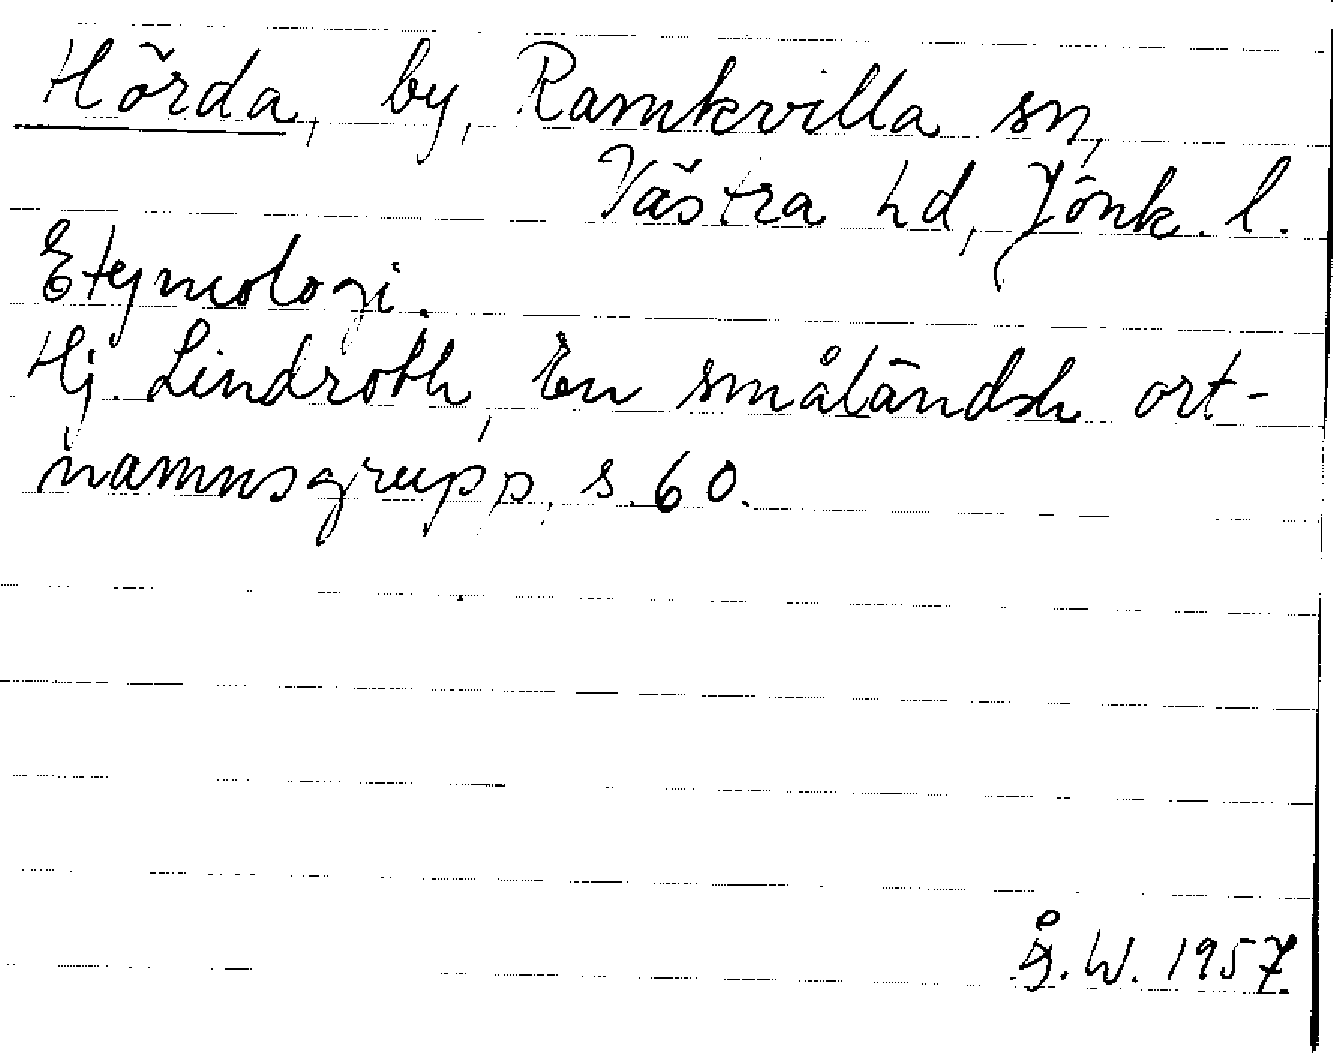 Hörda, by, Ramkvilla sn,
Västra hd, Jönk. l.
Etymologi.
Hj. Lindroth, En småländsk ort-
namnsgrupp, s. 60.
Å. W. 1957.